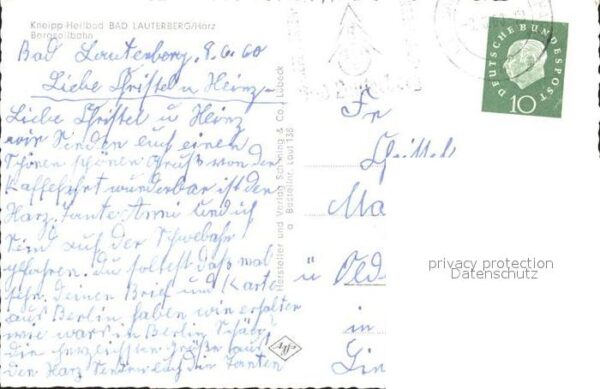 Kneipp-Heilbad BAD LAUTERBERG/Harz
Bergseilbahn
Bad Lauterberg, 8.6.60
Liebe Christel u Heinz
Liebe Christel u Heinz
wir Senden euch einen
schönen schönen Gruß von der
Kaffefahrt wunderbar ist der
Harz. Tante und ich
Sind auf der Schwebahn
gefahren. du soltest daß mal
sehn. deinen Brief und Karte
aus Berlin haben wir erhalten
wie wars in Berlin
die herzlichsten Grüße aus
den Harz Senden euch die Tanten
Hersteller und Verlag Schöning & Co., Lübeck
Bestellnr. Laut 138
DEUTSCHE BUNDESPOST
10
Ma
ü Old
in
privacy protection
Datenschutz